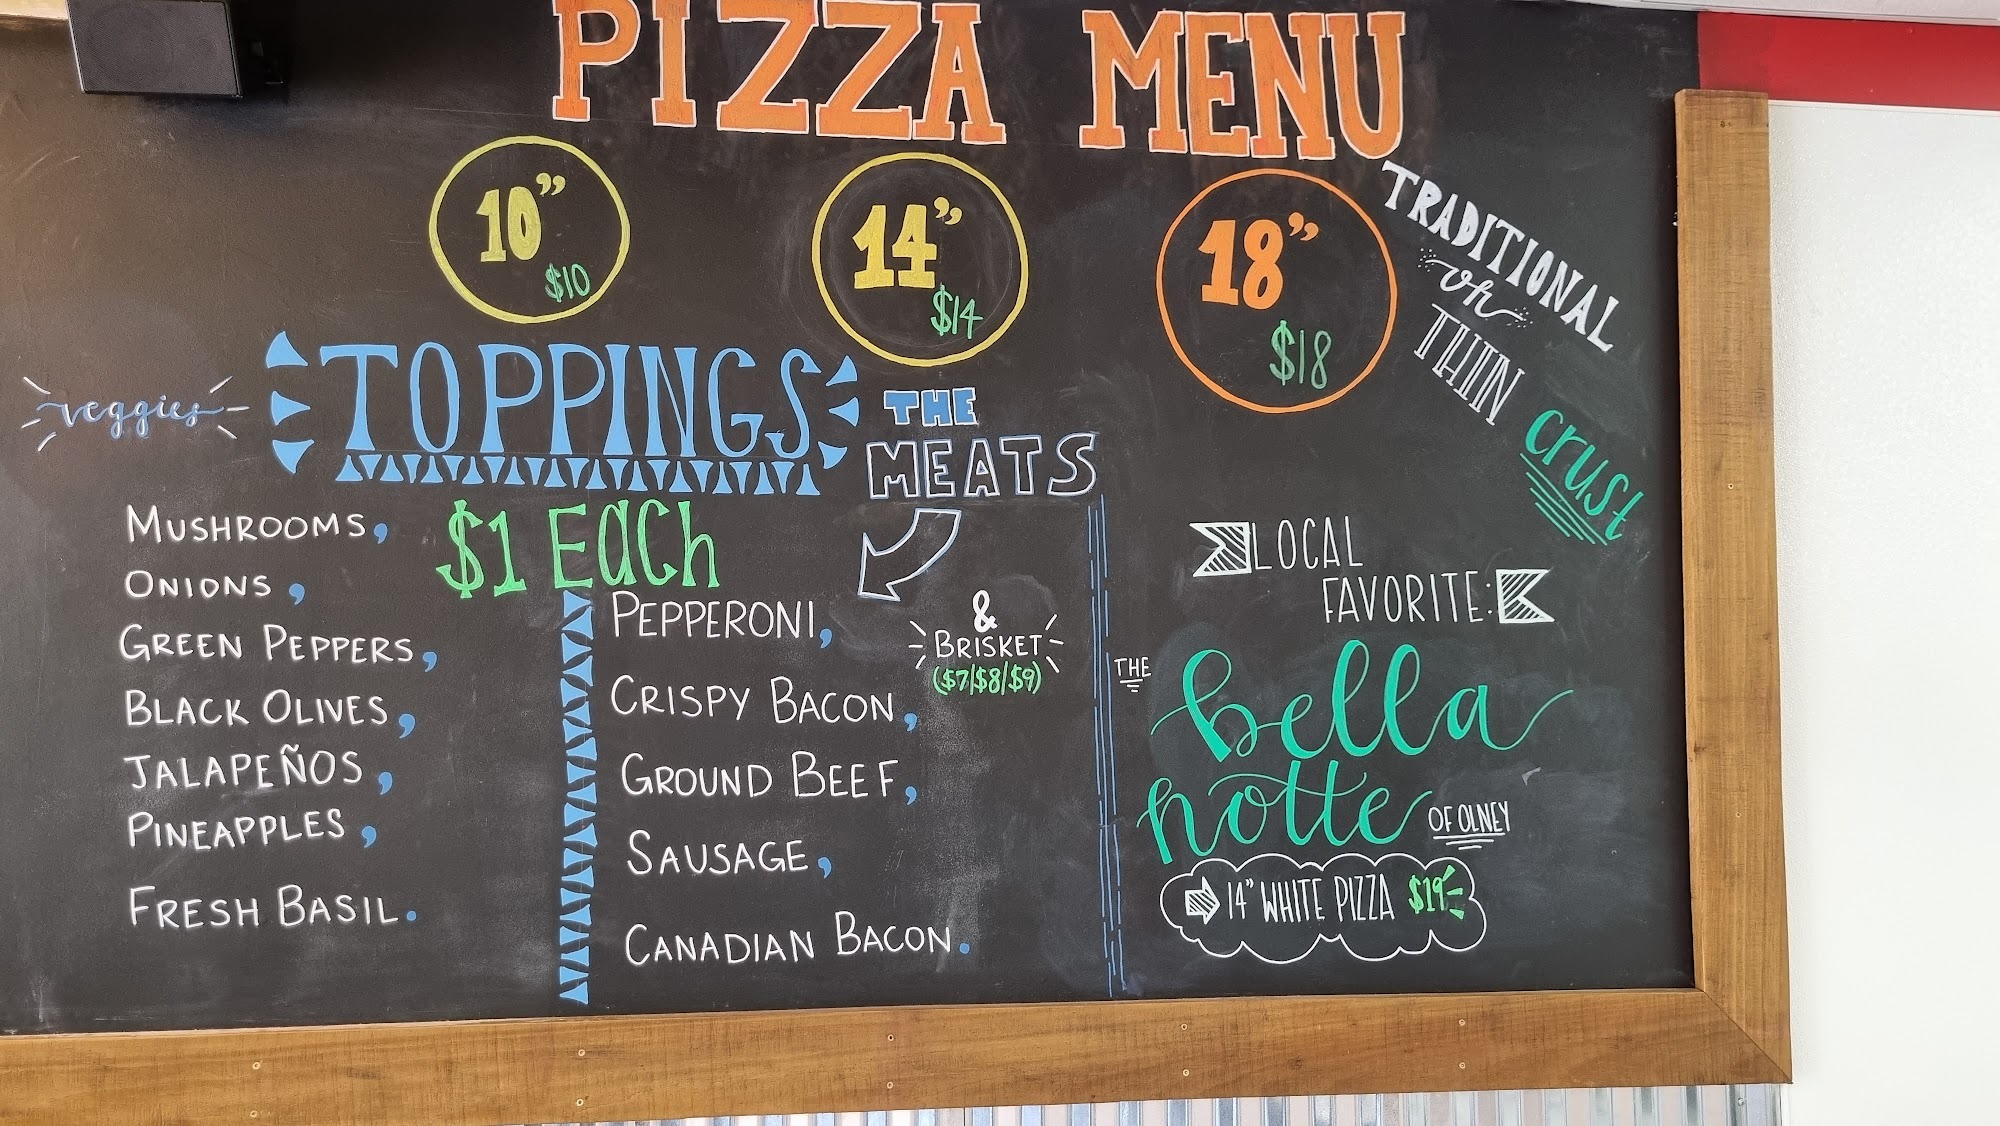 PIZZA MENU
10" $10
14" $14
18" $18
TRADITIONAL
or
THIN
crust
veggies
TOPPINGS
$1 Each
MUSHROOMS,
ONIONS,
GREEN PEPPERS,
BLACK OLIVES,
JALAPEÑOS,
PINEAPPLES,
FRESH BASIL.
THE
MEATS
PEPPERONI,
CRISPY BACON,
GROUND BEEF,
SAUSAGE,
CANADIAN BACON.
&
BRISKET
($7/$8/$9)
LOCAL
FAVORITE:
THE
bella
notte
OF OLNEY
14" WHITE PIZZA $19